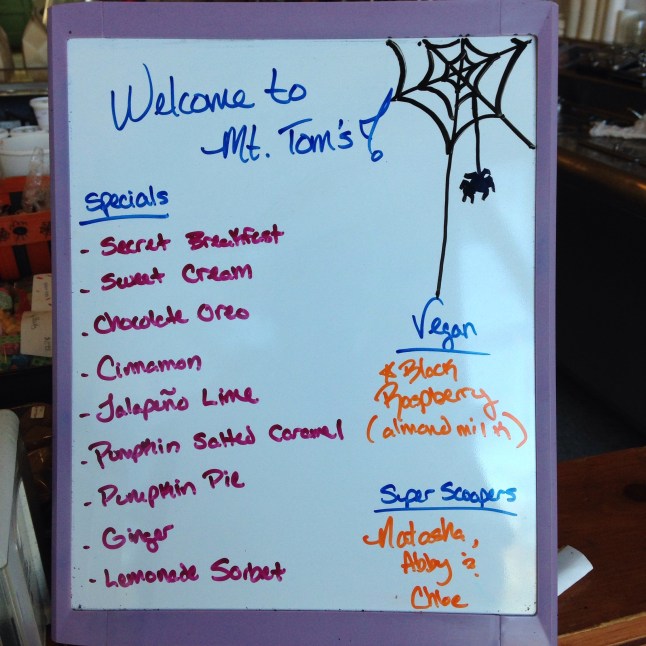 Welcome to
Mt. Tom's!
Specials
- Secret Breakfast
- Sweet Cream
- Chocolate Oreo
- Cinnamon
- Jalapeño Lime
- Pumpkin Salted Caramel
- Pumpkin Pie
- Ginger
- Lemonade Sorbet
Vegan
* Black
Raspberry
(almond milk)
Super Scoopers
Natasha,
Abby &
Chloe